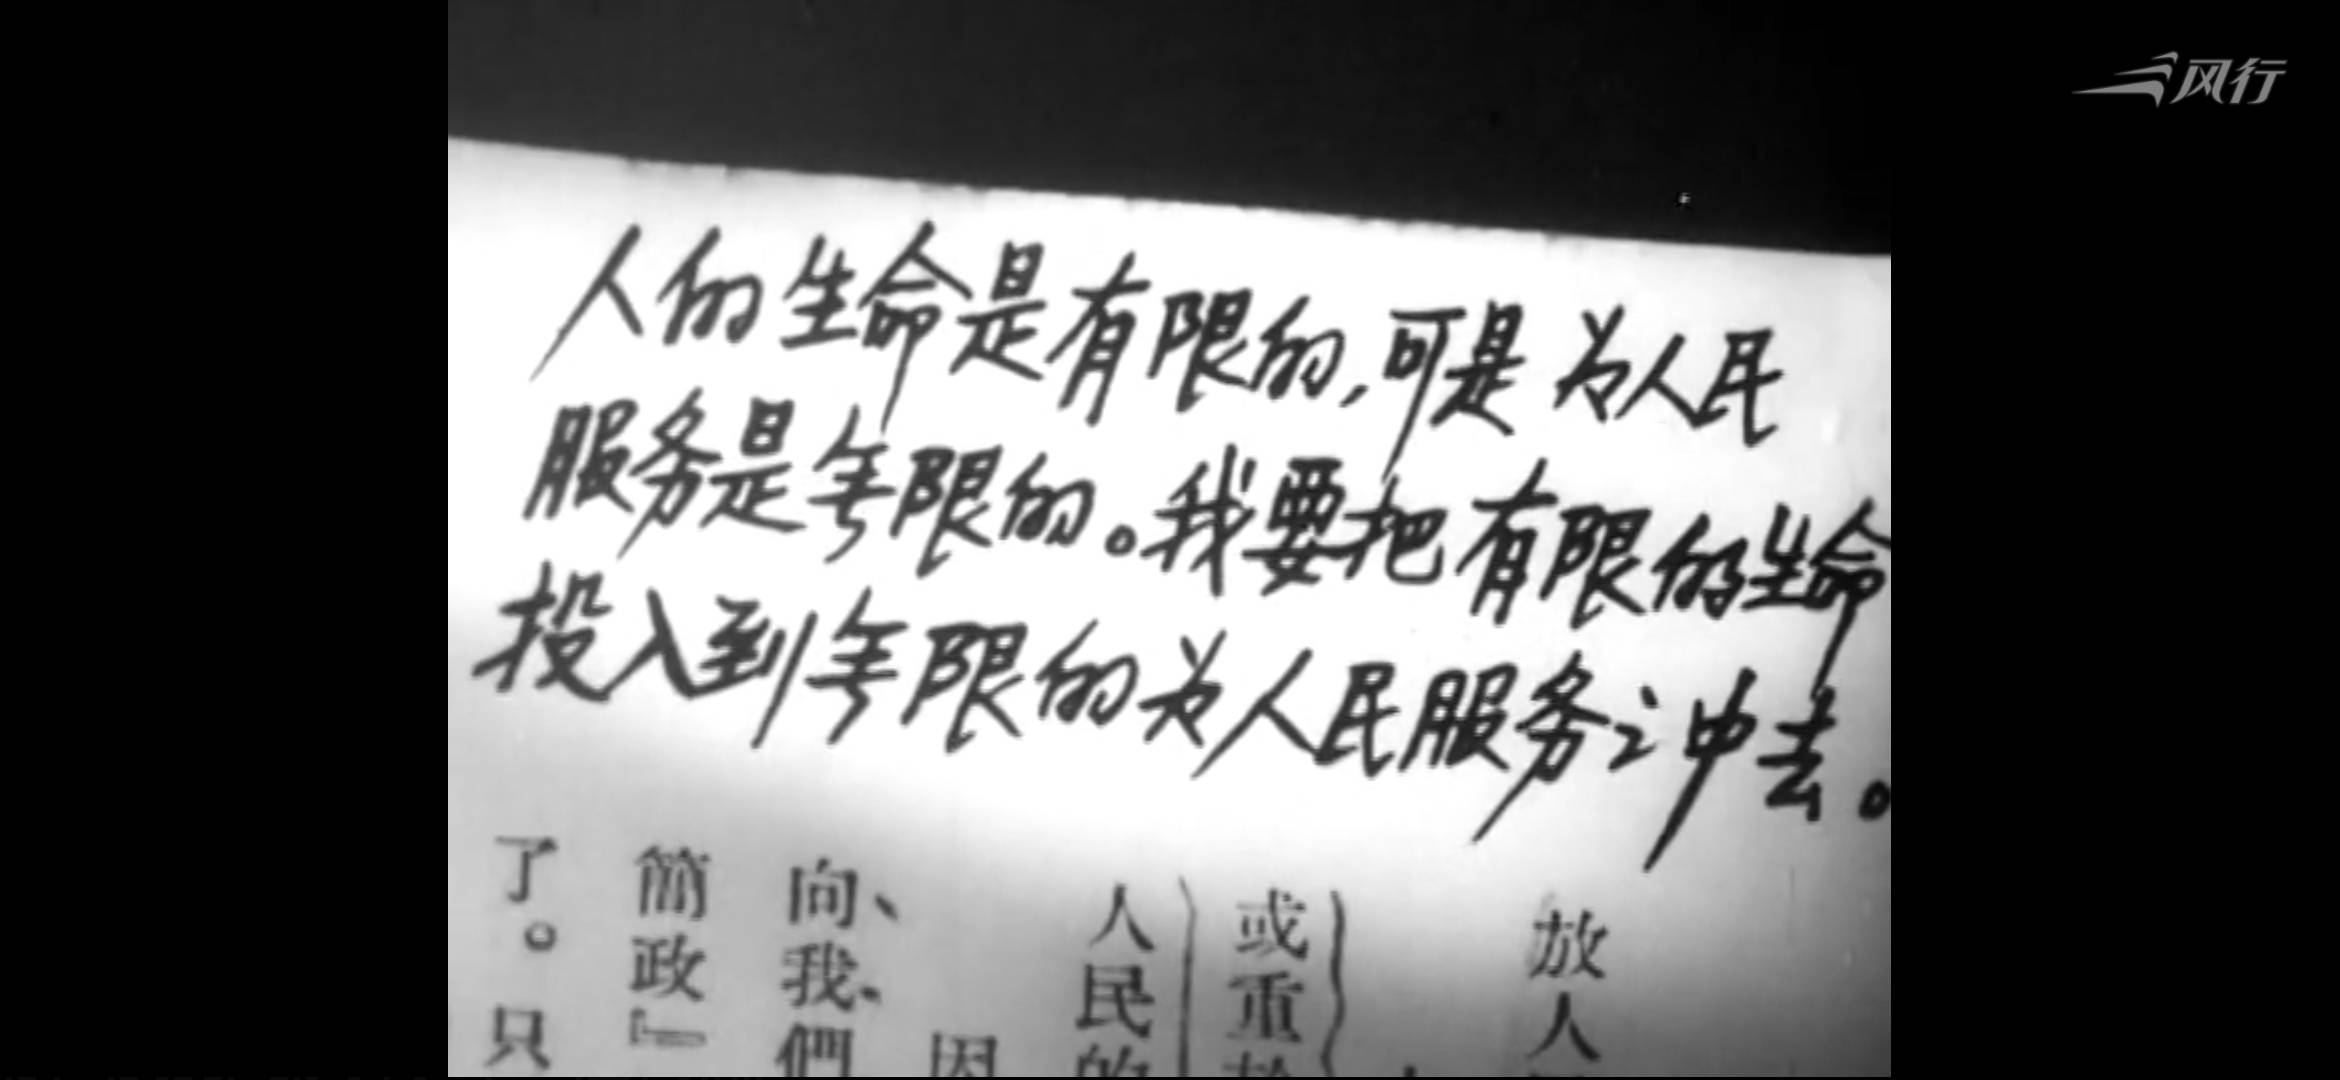 风行
人的生命是有限的,可是为人民
服务是无限的。我要把有限的生命
投入到无限的为人民服务之中去。
放人
或重於
人民的
因
向、我、們
簡政』
了。只